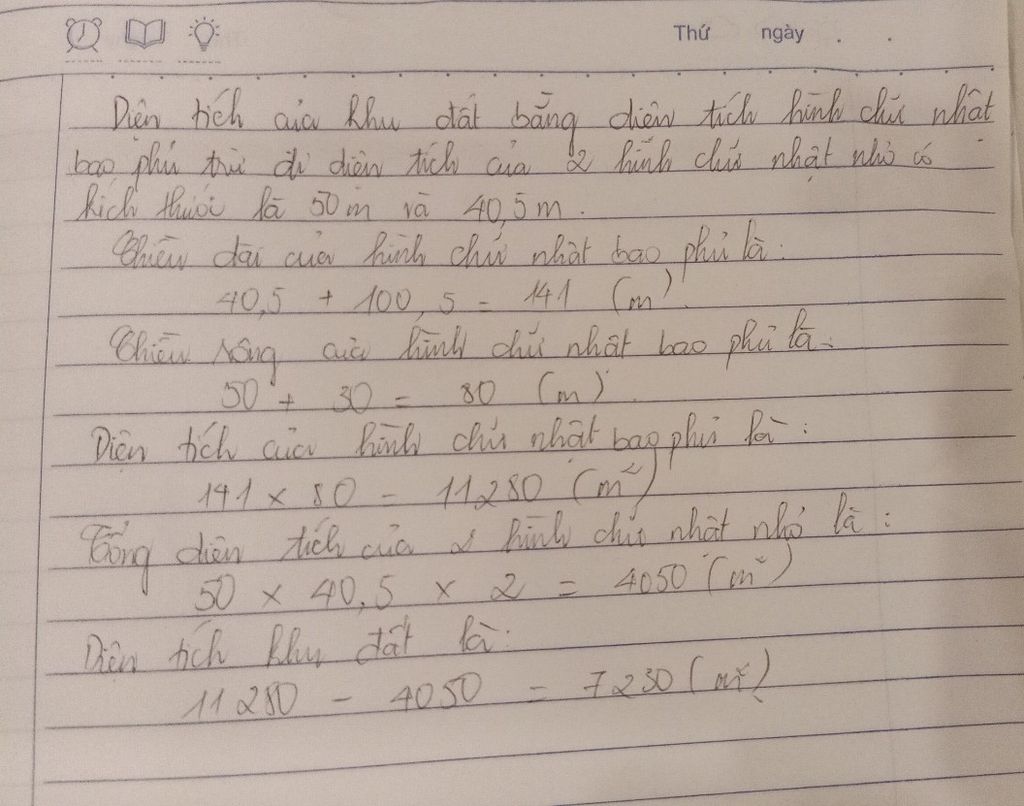 Thứ ngày . .
Diện tích của khu đất bằng diện tích hình chữ nhật
bao phủ trừ đi diện tích của 2 hình chữ nhật nhỏ có
kích thước là 50 m và 40,5 m.
Chiều dài của hình chữ nhật bao phủ là:
40,5 + 100,5 = 141 (m).
Chiều rông của hình chữ nhật bao phủ là:
50 + 30 = 80 (m).
Diện tích của hình chữ nhật bao phủ là:
141 x 80 = 11280 (m²)
Tổng diện tích của 2 hình chữ nhật nhỏ là:
50 x 40,5 x 2 = 4050 (m²)
Diện tích khu đất là:
11280 - 4050 = 7230 (m²)